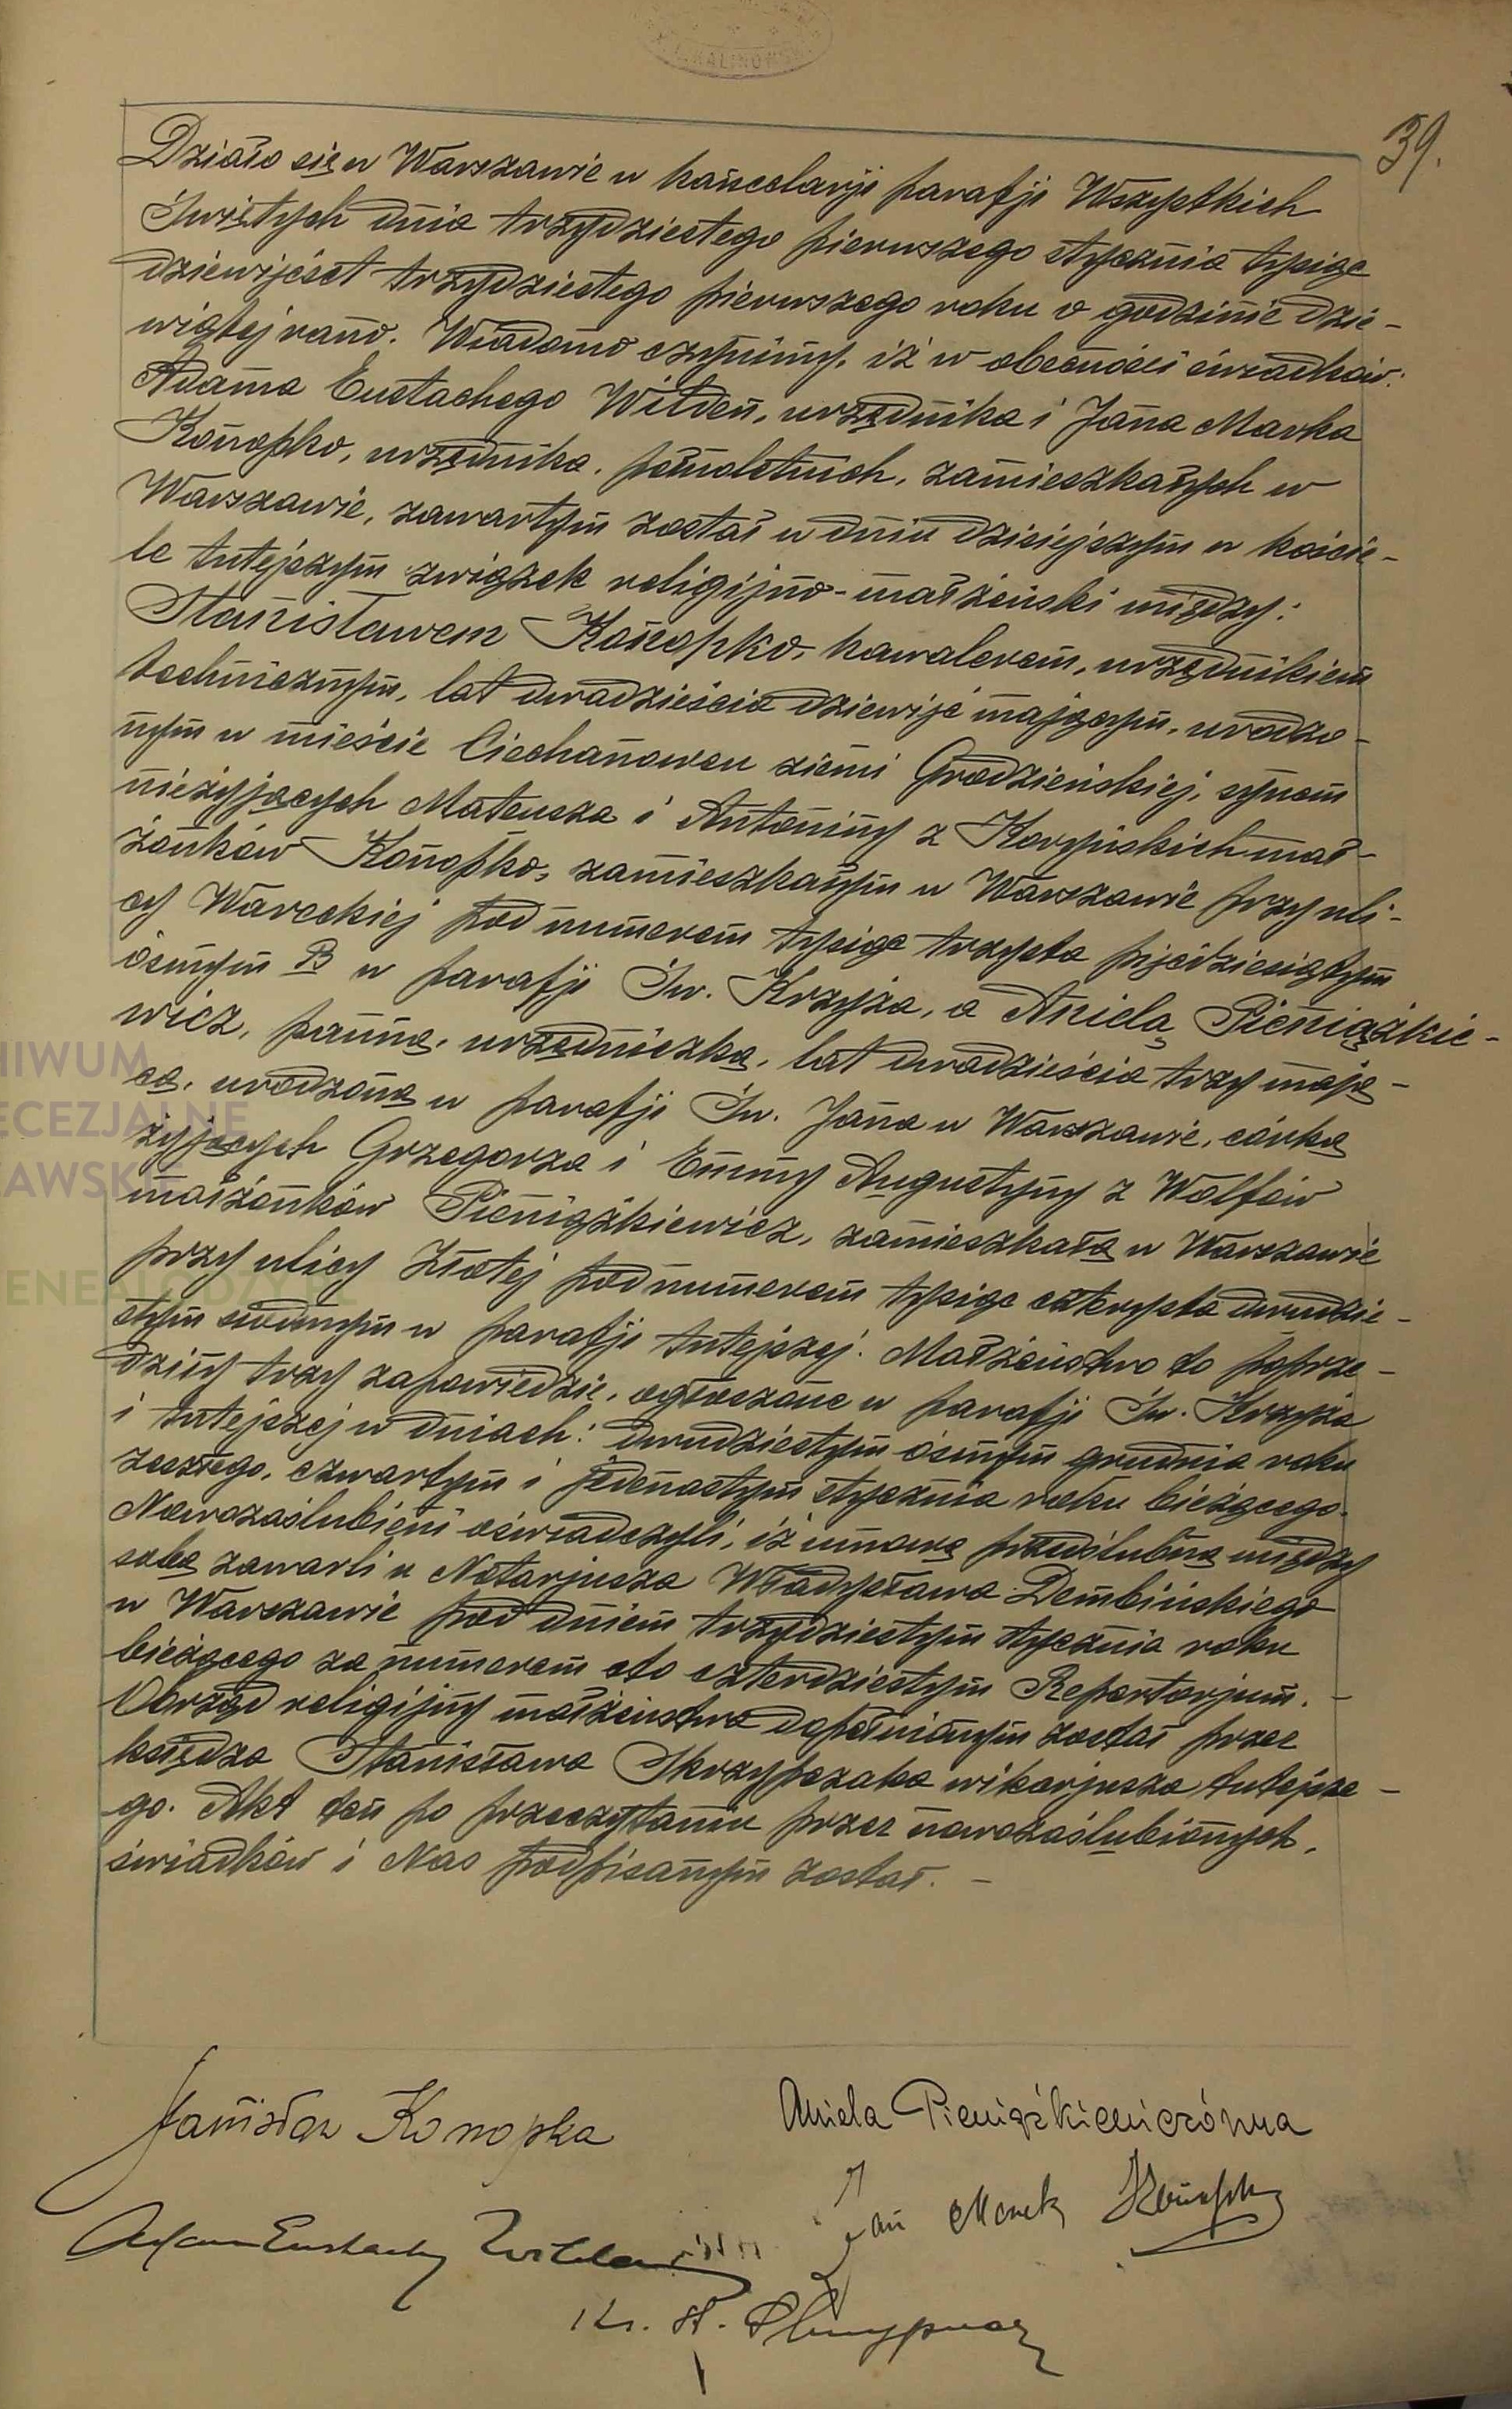 39.
Działo się w Warszawie w kancelarji parafji Wszystkich
Świętych dnia trzydziestego pierwszego stycznia tysiąc
dziewięćset trzydziestego pierwszego roku o godzinie dzie-
wiątej rano. Wiadomo czynimy, iż w obecności świadków:
Adama Eustachego Wilden, urzędnika i Jana Marka
Konopko, urzędnika, pełnoletnich, zamieszkałych w
Warszawie, zawartym został w dniu dzisiejszym w koście-
le tutejszym związek religijno-małżeński między:
Stanisławem Konopko, kawalerem, urzędnikiem
technicznym, lat dwadzieścia dziewięć mającym, urodzo-
nym w mieście Ciechanowcu ziemi Grodzieńskiej, synem
nieżyjących Mateusza i Antoniny z Korycińskich mał-
żonków Konopko, zamieszkałym w Warszawie przy uli-
cy Wareckiej pod numerem tysiąc trzysta pięćdziesiątym
ósmym B w parafji Św. Krzyża, a Anielą Pieniążkie-
wicz, panną, urzędniczką, lat dwadzieścia trzy mają-
cą, urodzoną w parafji Św. Jana w Warszawie, córką
żyjących Grzegorza i Emmy Augustyny z Wolfów
małżonków Pieniążkiewicz, zamieszkałą w Warszawie
przy ulicy Złotej pod numerem tysiąc czterysta dwudzie-
stym siódmym w parafji tutejszej. Małżeństwo to poprze-
dziły trzy zapowiedzie, ogłoszone w parafji Św. Krzyża
i tutejszej w dniach: dwudziestym ósmym grudnia roku
zeszłego, czwartym i jedenastym stycznia roku bieżącego.
Nowozaślubieni oświadczyli, iż umowę przedślubną między
sobą zawarli u Notarjusza Władysława Dembińskiego
w Warszawie pod dniem trzydziestym stycznia roku
bieżącego za numerem sto czterdziestym Repertorjum. -
Obrząd religijny małżeństwa dopełnionym został przez
księdza Stanisława Skrzypczaka wikarjusza tutejsze-
go. Akt ten po przeczytaniu przez nowozaślubionych,
świadków i Nas podpisanym został. -
Stanisław Konopka
Aniela Pieniążkiewiczówna
Adam Eustachy Wilden
Jan Marek Konopko
Ks. St. Skrzypczak